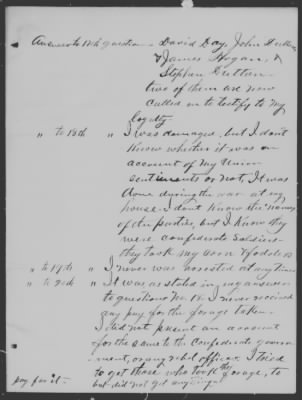 Answer to 17th question - David Day, John Dutton
& James Hogan, &
Stephen Dutton
two of them are now
called on to testify to my
loyalty
" to 18th " I was damaged, but I don't
know whether it was on
account of my Union
sentiments or not, It was
done during the war at my
house. I don't know the names
of the parties, but I know they
were confederate soldiers
they took my corn & fodder
" to 19th " I never was arrested at any time
" to 20th " It was as stated in my answer
to question No 18. I never received
any pay for the forage taken.
I did not present an account
for the same to the Confederate govern-
ment, or any rebel officer. I tried
to get those who took the forage, to
pay for it - but did not get anything.